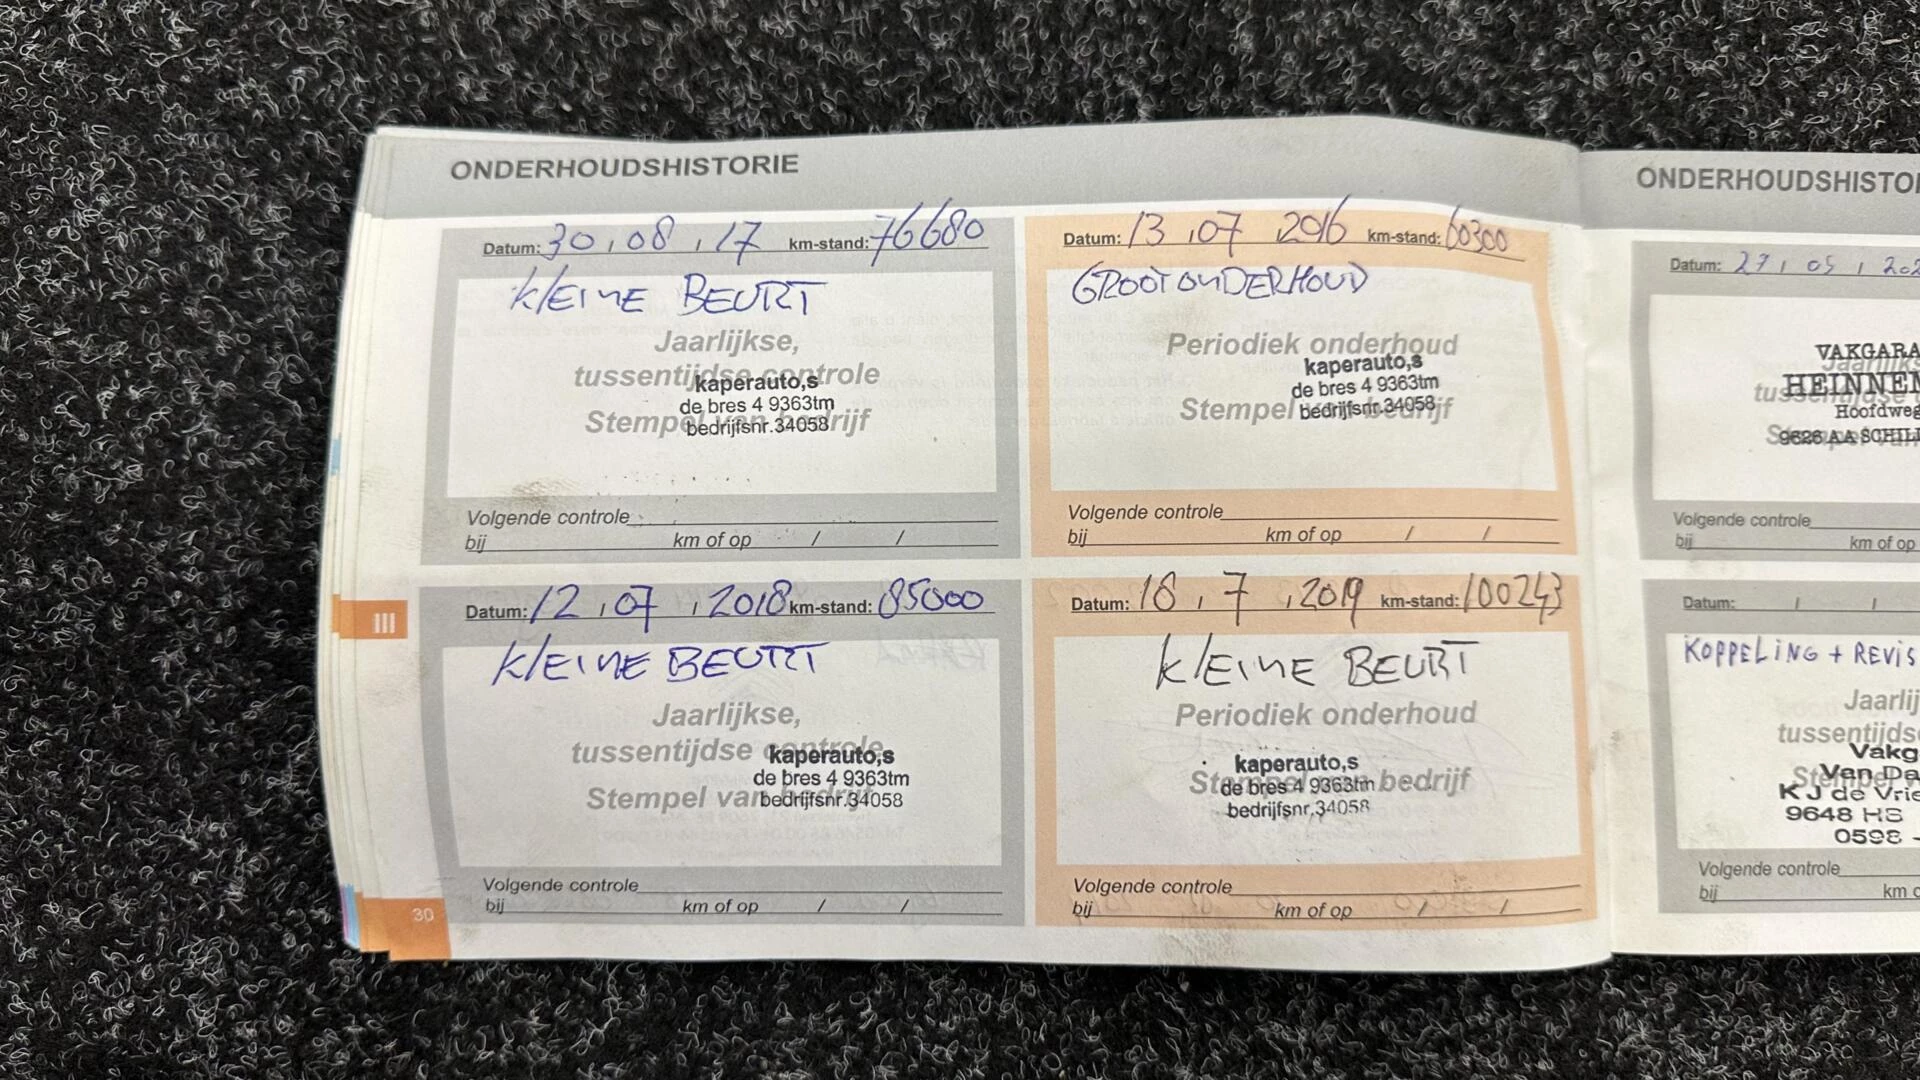 ONDERHOUDSHISTORIE
Datum: 30 / 08 / 17 km-stand: 76680
KLEINE BEURT
Jaarlijkse,
tussentijdse controle
Stempel van bedrijf
kaperauto,s
de bres 4 9363tm
bedrijfsnr.34058
Volgende controle
bij km of op / /
Datum: 13 / 07 2016 km-stand: 60300
GROOT ONDERHOUD
Periodiek onderhoud
Stempel van bedrijf
kaperauto,s
de bres 4 9363tm
bedrijfsnr.34058
Volgende controle
bij km of op / /
Datum: 12 / 07 / 2018 km-stand: 85000
KLEINE BEURT
Jaarlijkse,
tussentijdse controle
Stempel van bedrijf
kaperauto,s
de bres 4 9363tm
bedrijfsnr.34058
Volgende controle
bij km of op / /
Datum: 18 / 7 / 2019 km-stand: 100243
KLEINE BEURT
Periodiek onderhoud
Stempel van bedrijf
kaperauto,s
de bres 4 9363tm
bedrijfsnr.34058
Volgende controle
bij km of op / /
III
30
ONDERHOUDSHISTO
Datum: 27 / 05 / 202
VAKGARA
HEINNEM
Hoofdweg
9626 AA SCHIL
Volgende controle
bij km of op
Datum: / /
KOPPELING + REVIS
Jaarlij
tussentijds
Vakg
Van Da
K J de Vrie
9648 HS
0598 -
Volgende controle
bij km o